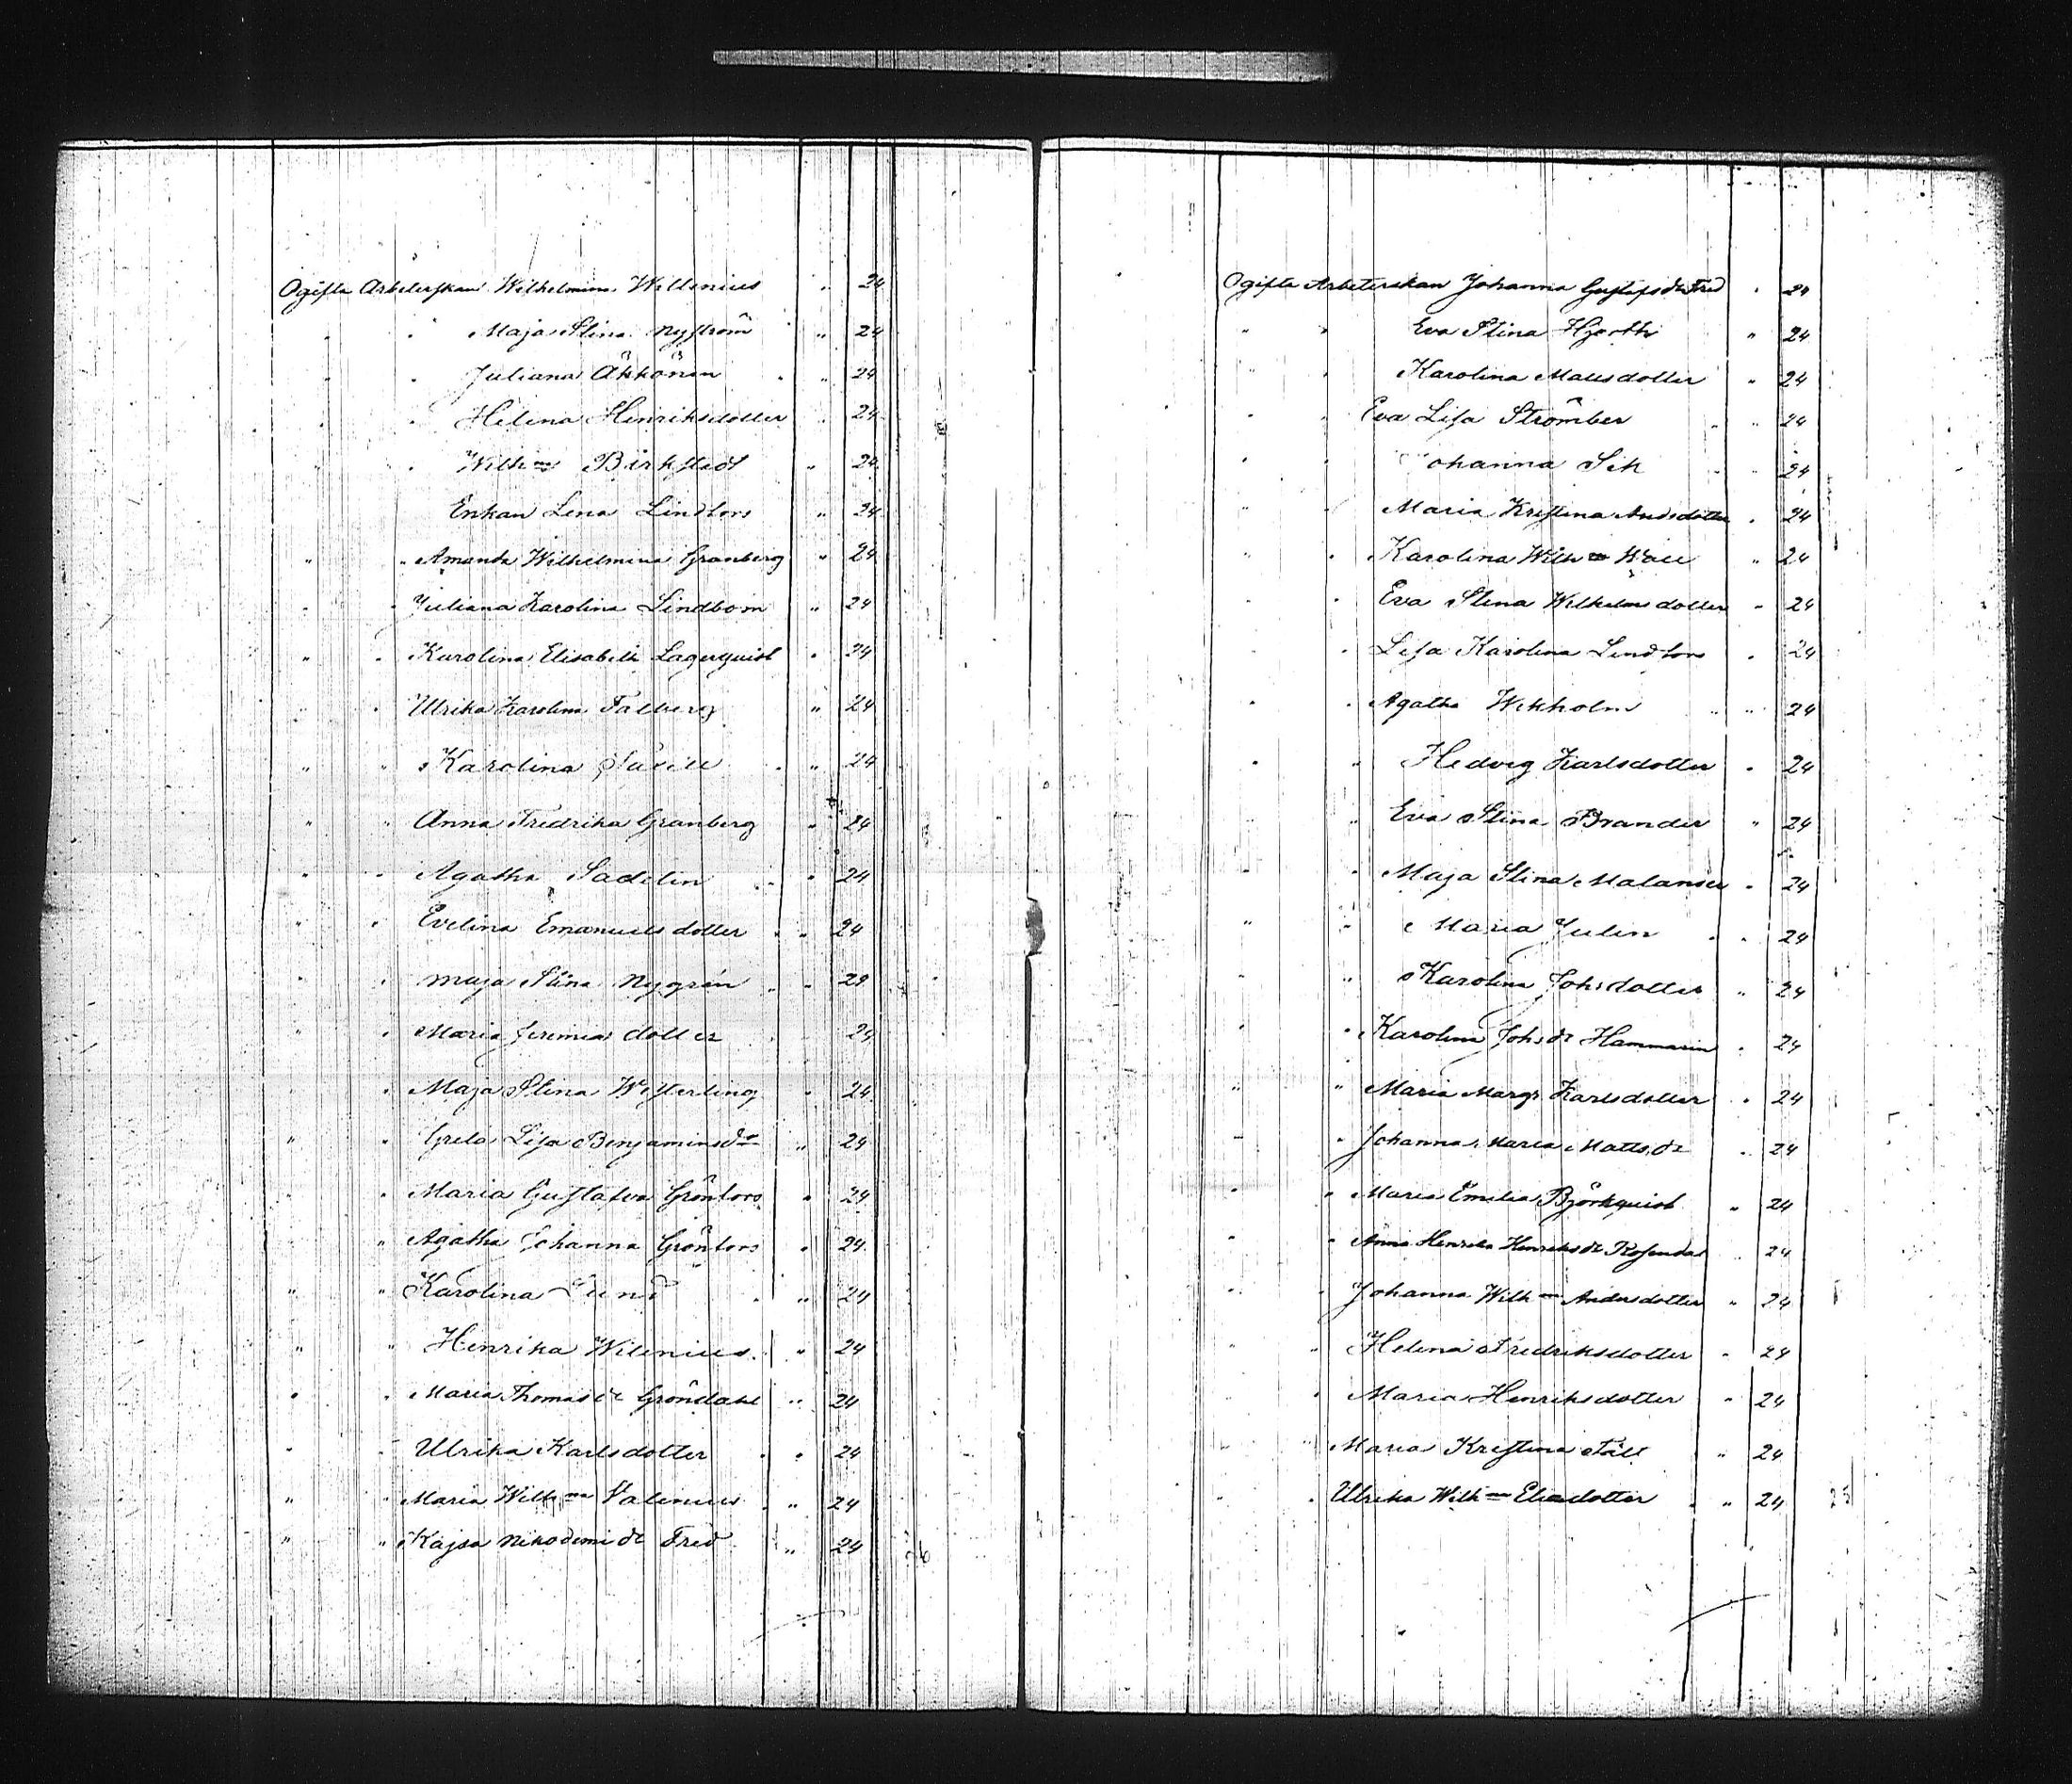 Ogifta Arbeterskan Wilhelmina Willenius " 24
" " Maja Stina Nyström " 24
" " Juliana Äkkönen " 24
" " Helena Henriksdotter " 24
" " Wilh:na Birkstedt " 24
Enkan Lena Lindfors " 24
" " Amanda Wilhelmina Granberg " 24
" " Juliana Karolina Lindbom " 24
" " Karolina Elisabeth Lagerquist " 24
" " Ulrika Karolina Falberg " 24
" " Karolina " 24
" " Anna Fredrika Granberg " 24
" " Agatha Sadelin " 24
" " Evelina Emanuelsdotter " 24
" " Maja Stina Nygrén " 24
" " Maria Jeremiadotter 24
" " Maja Stina Westerling " 24
" " Greta Lisa Benjaminsdr " 24
" " Maria Gustafva Grönfors " 24
" " Agatha Johanna Grönfors " 24
" " Karolina Lund " 24
" " Henrika Wilenius " 24
" " Maria Thomasdr Gröndahl " 24
" " Ulrika Karlsdotter " 24
" " Maria Wilh:na Valenius " 24
" " Kajsa Nikodemidr Fred " 24
26
Ogifta Arbeterskan Johanna Gustafsdr Fred " 24
" " Eva Stina Hjorth " 24
" " Karolina Mattsdotter " 24
" " Eva Lisa Strömber " 24
" " Johanna Sik " 24
" " Maria Kristina Andsdotter " 24
" " Karolina Wilh:na Wall " 24
" " Eva Stina Wilhelmsdotter " 24
" " Lisa Karolina Lindfors " 24
" " Agatha Wikholm " 24
" " Hedvig Karlsdotter " 24
" " Eva Stina Brander " 24
" " Maja Stina Malander " 24
" " Maria Julin " 24
" " Karolina Johsdotter " 24
" " Karolina Johsdr Hammarin " 24
" " Maria Margr Karlsdotter " 24
" " Johanna Maria Mattsdr " 24
" " Maria Emilia Björkquist " 24
" " Anna Henrika Henriksdr Rosendal " 24
" " Johanna Wilh:na Andersdotter " 24
" " Helena Fredriksdotter " 24
" " Maria Henriksdotter " 24
" " Maria Kristina Fält " 24
" " Ulrika Wilh:na Eliasdotter " 24
25